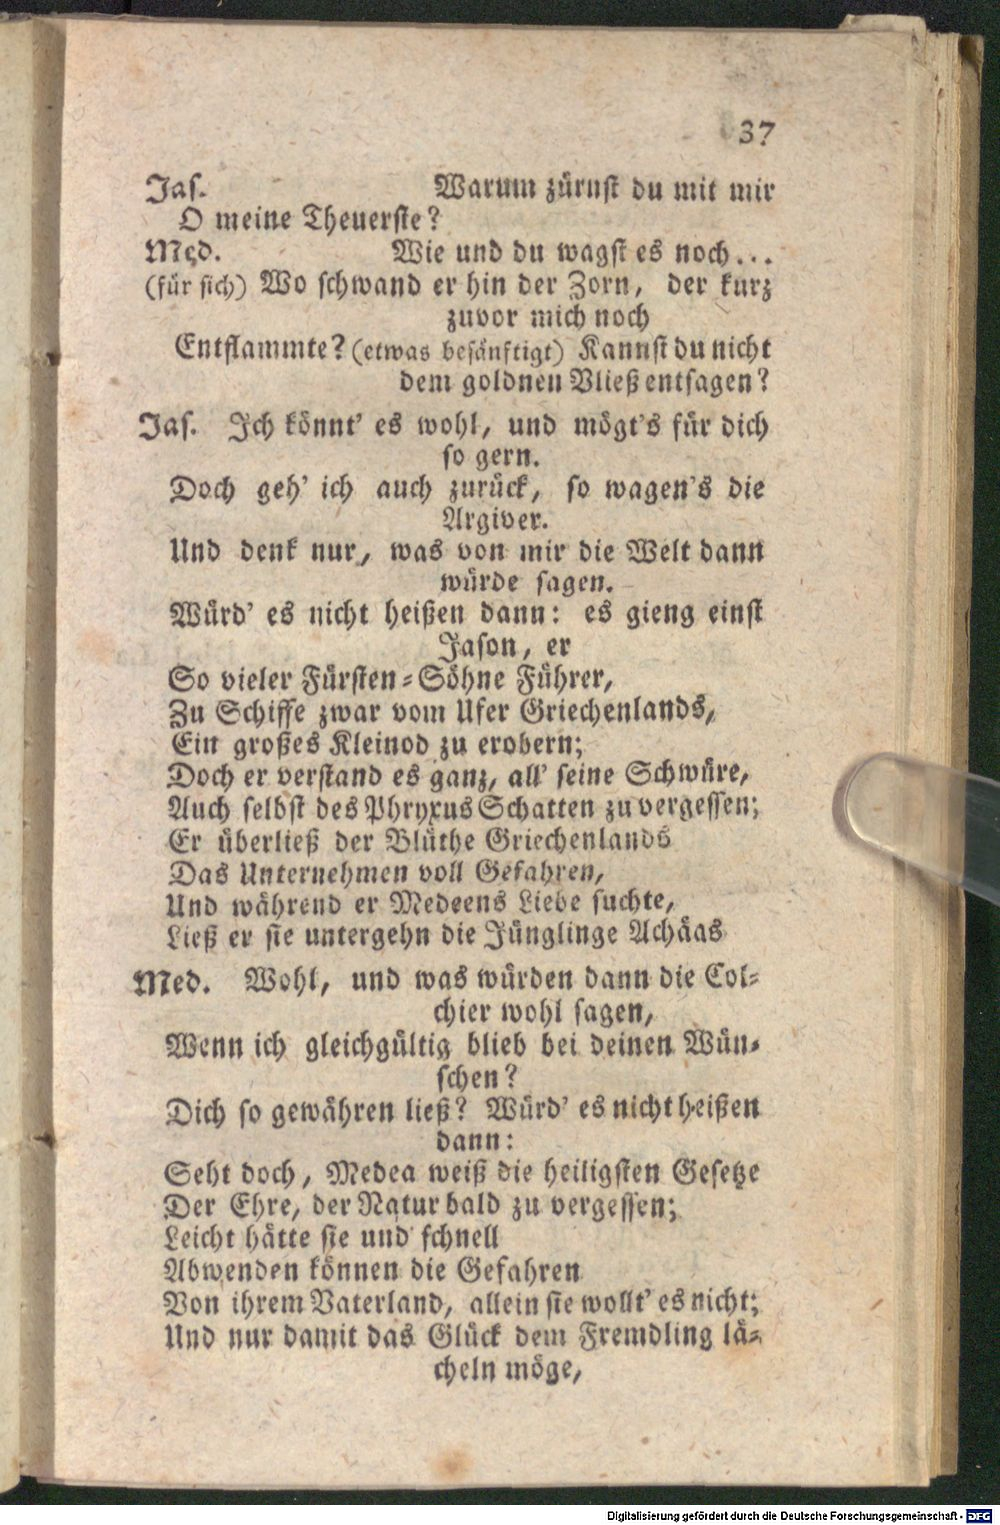 37
Jas. Warum zürnst du mit mir
O meine Theuerste?
Med. Wie und du wagst es noch...
(für sich) Wo schwand er hin der Zorn, der kurz
zuvor mich noch
Entflammte? (etwas besänftigt) Kannst du nicht
dem goldnen Vließ entsagen?
Jas. Ich könnt' es wohl, und mögt's für dich
so gern.
Doch geh' ich auch zurück, so wagen's die
Argiver.
Und denk nur, was von mir die Welt dann
würde sagen.
Würd' es nicht heißen dann: es gieng einst
Jason, er
So vieler Fürsten-Söhne Führer,
Zu Schiffe zwar vom Ufer Griechenlands,
Ein großes Kleinod zu erobern;
Doch er verstand es ganz, all' seine Schwüre,
Auch selbst des Phryxus Schatten zu vergessen;
Er überließ der Blüthe Griechenlands
Das Unternehmen voll Gefahren,
Und während er Medeens Liebe suchte,
Ließ er sie untergehn die Jünglinge Achäas
Med. Wohl, und was würden dann die Col-
chier wohl sagen,
Wenn ich gleichgültig blieb bei deinen Wün-
schen?
Dich so gewähren ließ? Würd' es nicht heißen
dann:
Seht doch, Medea weiß die heiligsten Gesetze
Der Ehre, der Natur bald zu vergessen;
Leicht hätte sie und schnell
Abwenden können die Gefahren
Von ihrem Vaterland, allein sie wollt' es nicht;
Und nur damit das Glück dem Fremdling lä-
cheln möge,
Digitalisierung gefördert durch die Deutsche Forschungsgemeinschaft - DFG